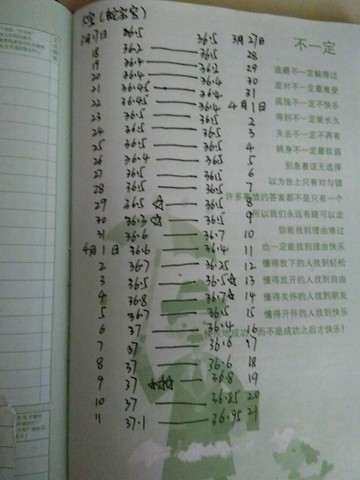 3月17日 36.5 36.5 3月27日
18 36.2 36.5 28
19 36.4 36.2 29
20 36.4 36.4 30
21 36.45 36.4 31
22 36.45 36.4 4月1日
23 36.4 36.5 2
24 36.5 36.5 3
25 36.5 36.5 4
26 36.4 36.5 5
27 36.5 36.5 6
28 36.5 36.5 7
29 36.5 ☆ 36.5 8
30 36.3 ☆ 36.5 9
31 36.6 36.7 10
4月1日 36.6 36.4 11
2 36.7 36.25 12
3 36.5 36.5☆ 13
4 36.8 36.7☆ 14
5 36.7 36.5 15
6 37 36.4 16
7 37 36.6 17
8 37 36.6 18
9 37 ☆☆☆ 36.8 19
10 37 36.85 20
11 37.1 36.95 21
不一定
逃避不一定躲得过
面对不一定最难受
孤独不一定不快乐
得到不一定能长久
失去不一定不再有
转身不一定最软弱
别急着说无选择
以为世上只有对与错
许多事情的答案都不是只有一个
所以我们永远有路可以走
你能找到理由难过
也一定能找到理由快乐
懂得放下的人找到轻松
懂得放开的人找到自由
懂得关怀的人找到朋友
懂得开怀的人找到快乐
成功，而不是成功之后才快乐！